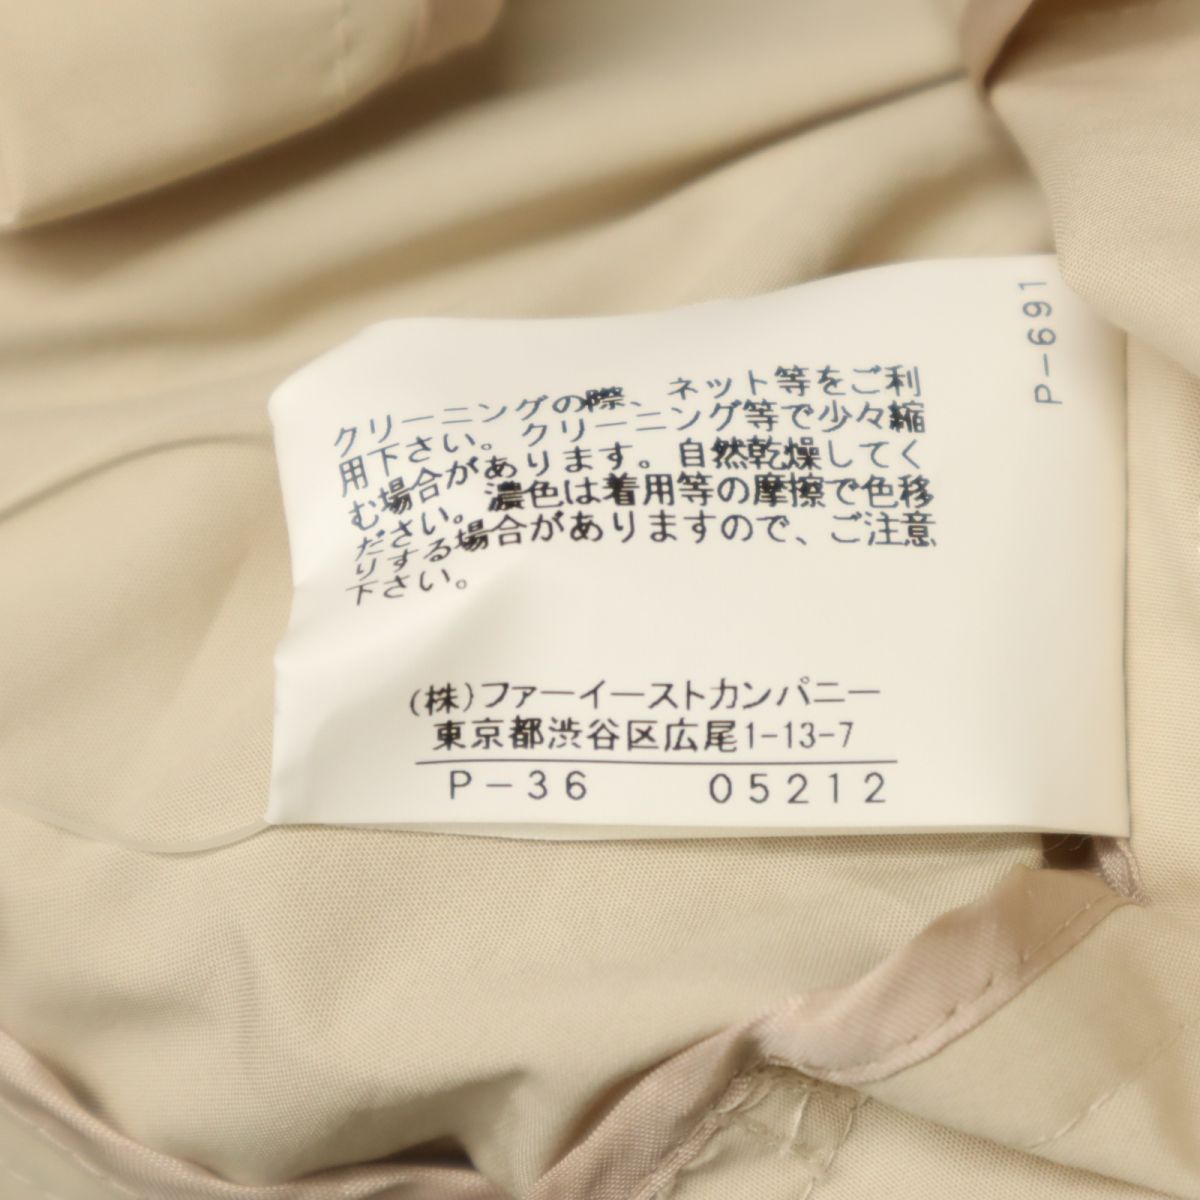 クリーニングの際、ネット等をご利
用下さい。クリーニング等で少々縮
む場合があります。自然乾燥してく
ださい。濃色は着用等の摩擦で色移
りする場合がありますので、ご注意
下さい。
(株)ファーイーストカンパニー
東京都渋谷区広尾1-13-7
P-36 05212
P-691